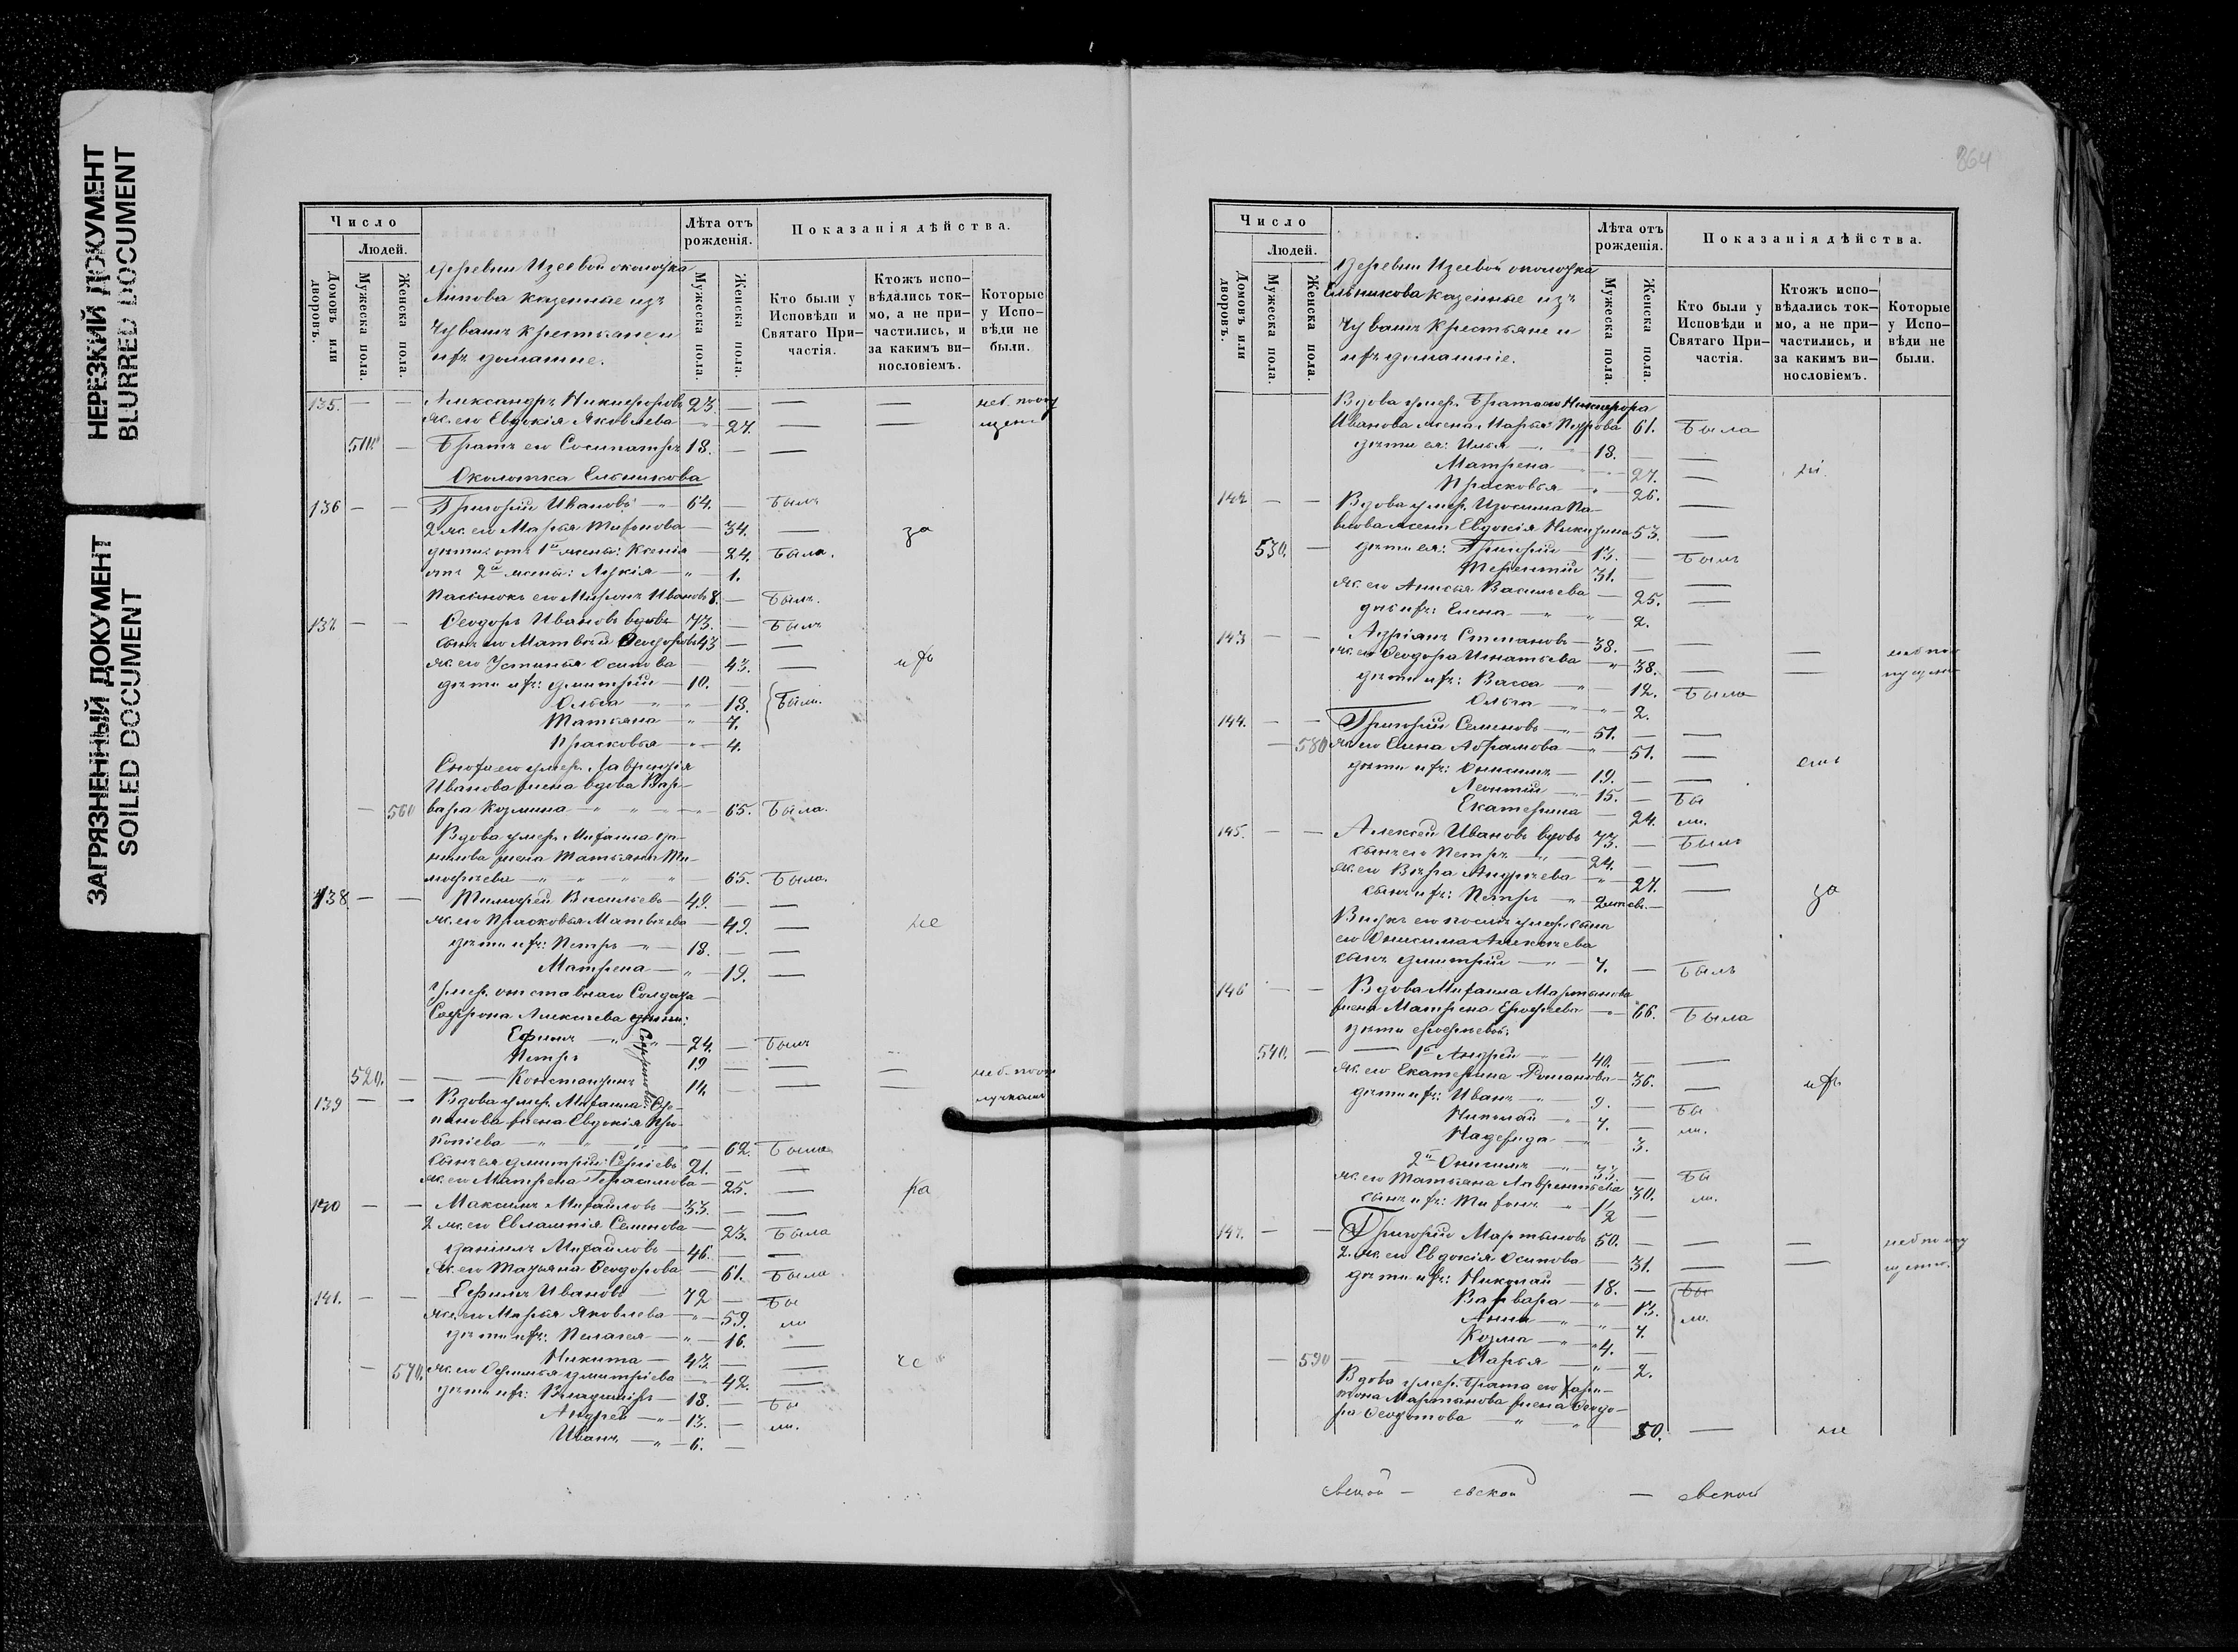 НЕРЕЗКИЙ ДОКУМЕНТ
BLURRED DOCUMENT
ЗАГРЯЗНЕННЫЙ ДОКУМЕНТ
SOILED DOCUMENT
Число
Людей.
Домовъ или дворовъ.
Мужеска пола.
Женска пола.
деревни Изеевой околотка
Липова казенные изъ
Чувашъ крестьяне и
ихъ домашние.
Лѣта отъ рожденія.
Мужеска пола.
Женска пола.
Показанія дѣйства.
Кто были у Исповѣди и Святаго Причастія.
Ктожъ исповѣдались токмо, а не причастились, и за какимъ винословіемъ.
Которые у Исповѣди не были.
135. — — Александръ Никифоровъ 23. — — —
ж. его Евдокія Яковлева — 27. — —
— Братъ его Сосипатръ 18. — —
Околотка Ельникова
136 — — Григорій Ивановъ — 64. — Былъ
2 ж. его Марья Тихонова — 34. — за
дѣти: отъ 1й жены: Ксенія — 24. Была.
отъ 2й жены: — 1.
Пасынокъ его Миронъ Ивановъ 8. — Былъ.
137 — — Ѳеодоръ Ивановъ вдовъ 73. — Былъ
сынъ его Матвѣй Ѳеодоровъ 43 — —
ж. его Устинья Осипова — 43. — ихъ
дѣти ихъ: Димитрій — 10.
Ольга — 13. Были.
Татьяна — 7.
Прасковья — 4.
Сноха его умер. Лаврентія
Иванова жена вдова Вар-
— 560 вара Козмина — 65. Была.
Вдова умер. Михаила Да-
нилова жена Татьяна Ти-
мофѣева — 65. Была.
138 — — Тимофей Васильевъ — 49. — —
ж. его Прасковья Матвѣева — 49. — же
дѣти ихъ: Петръ — 18. — —
Матрена — 19. —
Умер. отставнаго Солдата
Софрона Алексѣева дѣти:
Ефимъ — 24. — Былъ
Петръ 19 — —
520. — Константинъ 14. — —
139 — — Вдова умер. Михаила
жена Евдокія Про-
копіева — 62. Была
сынъ ея Димитрій Сергіевъ 21. — —
ж. его Матрена Герасимова — 25. — ра
140 — — Максимъ Михайловъ — 33. — —
2 ж. его Евлампія Семенова — 23. Была
Даніилъ Михайловъ — 46. — —
ж. его Татьяна Ѳеодорова — 61. Была
141. — — Ефимъ Ивановъ — 72 — Бы
ж. его Марья Яковлева — 59. ли
дѣти ихъ: Пелагея — 16. —
Никита — 43. — — че
— 570. ж. его Димитріева — 42. —
дѣти ихъ: Владиміръ — 18. — Бы
Андрей — 13. — ли.
Иванъ — 6. —
364
Число
Людей.
Домовъ или дворовъ.
Мужеска пола.
Женска пола.
Деревни Изеевой околотка
Ельникова казенные изъ
Чувашъ крестьяне и
ихъ домашніе.
Лѣта отъ рожденія.
Мужеска пола.
Женска пола.
Показанія дѣйства.
Кто были у Исповѣди и Святаго Причастія.
Ктожъ исповѣдались токмо, а не причастились, и за какимъ винословіемъ.
Которые у Исповѣди не были.
Вдова умер. Брата его Никифора
Иванова жена Марья Петрова 61. Была
дѣти ея: Илья — 18. — —
Матрена — 27. —
Прасковья — 26. —
142 — — Вдова умер. Изосима Па-
влова жена Евдокія Никитина 53. —
530. — дѣти ея: Григорій — 13. — Былъ
Терентій 31. — —
ж. его Анисья Васильева — 25. —
дочь ихъ: Елена — 2.
143 — — Адріанъ Степановъ — 38. — — —
ж. его Ѳеодора Игнатьева — 38. — —
дѣти ихъ: Васса — 12. Была
Ольга — 2.
144. — — Григорій Семеновъ — 51. — —
— 580 ж. его Елена Абрамова — 51. —
дѣти ихъ: Онисимъ — 19. — —
Леонтій — 15. — Бы
Екатерина — 24. ли.
145. — — Алексей Ивановъ вдовъ 73. — Былъ
сынъ его Петръ — 24. — —
ж. его Вѣра Андреева — 27. — за
сынъ ихъ: Петръ —
Внукъ его послѣ умер. сына
его Онисима Алексѣева
сынъ Димитрій — 7. — Былъ
146 — — Вдова Михаила Мартынова
жена Матрена Ерофѣева — 66. Была
дѣти Ерофѣевой:
540. — 1й Андрей — 40. — —
ж. его Екатерина Романова — 36. — ихъ
дѣти ихъ: Иванъ — 9. — Бы
Николай — 7. — ли.
Надежда — 3.
2й Онисимъ — 33. — Бы
ж. его Татьяна Лаврентьева 30. ли.
сынъ ихъ: Тихонъ — 1/2 —
147. — — Григорій Мартыновъ 50. — — —
2. ж. его Евдокія Осипова — 31. — —
дѣти ихъ: Николай — 18. — Бы
Варвара — 13. ли.
Анна — 7.
Козма — 4. —
— 590 — Марья — 2.
Вдова умер. Брата его Хари-
тона Мартынова жена Ѳеодо-
ра Ѳедотова — 50. — же